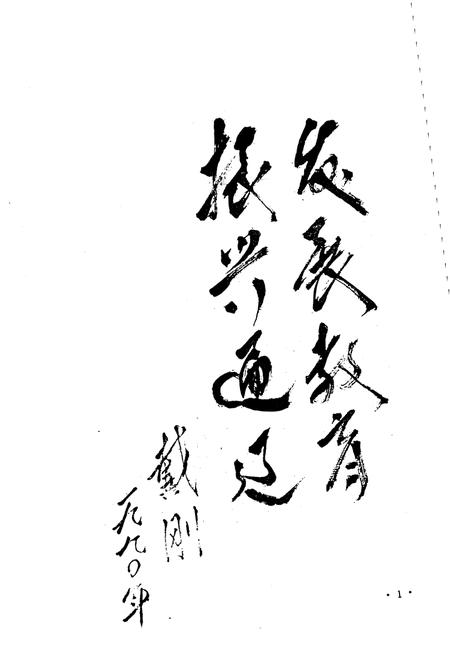 发展教育
振兴通辽
戴刚
一九九〇年
·1·